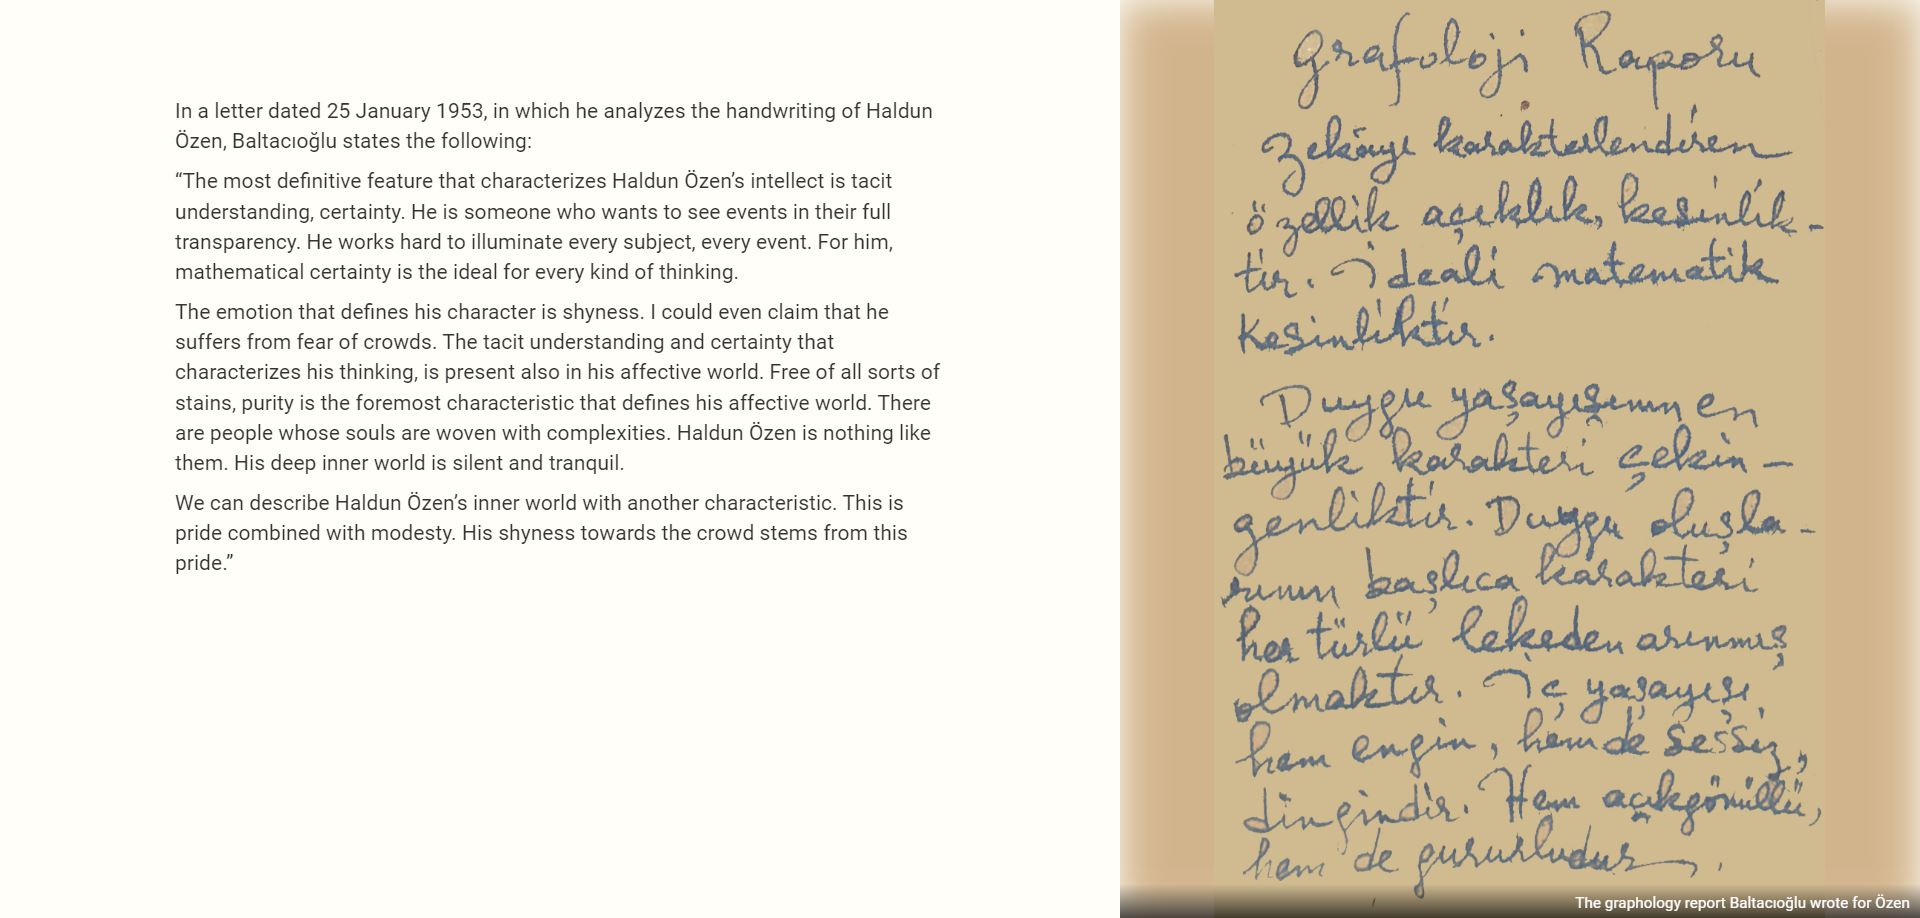 In a letter dated 25 January 1953, in which he analyzes the handwriting of Haldun
Özen, Baltacıoğlu states the following:
“The most definitive feature that characterizes Haldun Özen’s intellect is tacit
understanding, certainty. He is someone who wants to see events in their full
transparency. He works hard to illuminate every subject, every event. For him,
mathematical certainty is the ideal for every kind of thinking.
The emotion that defines his character is shyness. I could even claim that he
suffers from fear of crowds. The tacit understanding and certainty that
characterizes his thinking, is present also in his affective world. Free of all sorts of
stains, purity is the foremost characteristic that defines his affective world. There
are people whose souls are woven with complexities. Haldun Özen is nothing like
them. His deep inner world is silent and tranquil.
We can describe Haldun Özen’s inner world with another characteristic. This is
pride combined with modesty. His shyness towards the crowd stems from this
pride.”
Grafoloji Raporu
Zekâyı karakterlendiren
özellik açıklık, kesinlik-
tir. İdeali matematik
kesinliktir.
Duygu yaşayışının en
büyük karakteri çekin-
genliktir. Duygu oluşla-
rının başlıca karakteri
her türlü lekeden arınmış
olmaktır. İç yaşayışı
hem engin, hem de sessiz,
dingindir. Hem açıkgönüllü,
hem de gururludur.
The graphology report Baltacıoğlu wrote for Özen